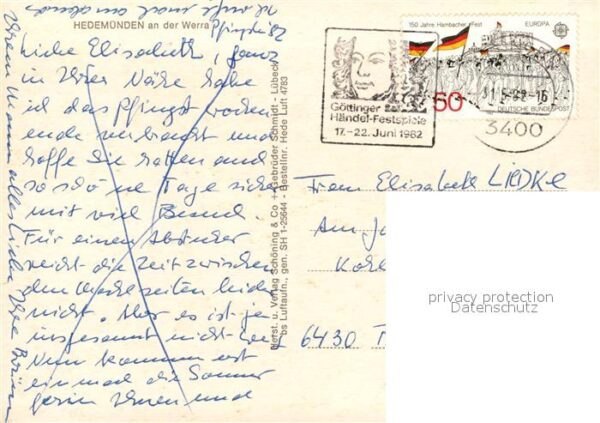 HEDEMÜNDEN an der Werra
Pfingsten 82
Liebe Elisabeth, ganz
in Ihrer Nähe habe
ich das Pfingstwochen
ende verbracht und
hoffe Sie hatten auch
so schöne Tage sicher
mit viel Besuch.
Für einen Abstecher
reicht die Zeit zwischen
den Mahlzeiten leider
nicht. Aber es ist ja
insgesamt nicht weit
Nun kommen erst
einmal die Sommer
ferien Ihnen und
Ihrem Mann alles Liebe Ihre
Herst. u. Verlag Schöning & Co + Gebrüder Schmidt - Lübeck
bs Luftaufn., gen. SH 1-25644 - Bestellnr. Hede Luft 4783
150 Jahre Hambacher Fest
EUROPA
CEPT
50
DEUTSCHE BUNDESPOST
Göttinger
Händel-Festspiele
17.-22. Juni 1982
3400
Frau Elisabeth LIEDKE
Am
6430
privacy protection
Datenschutz